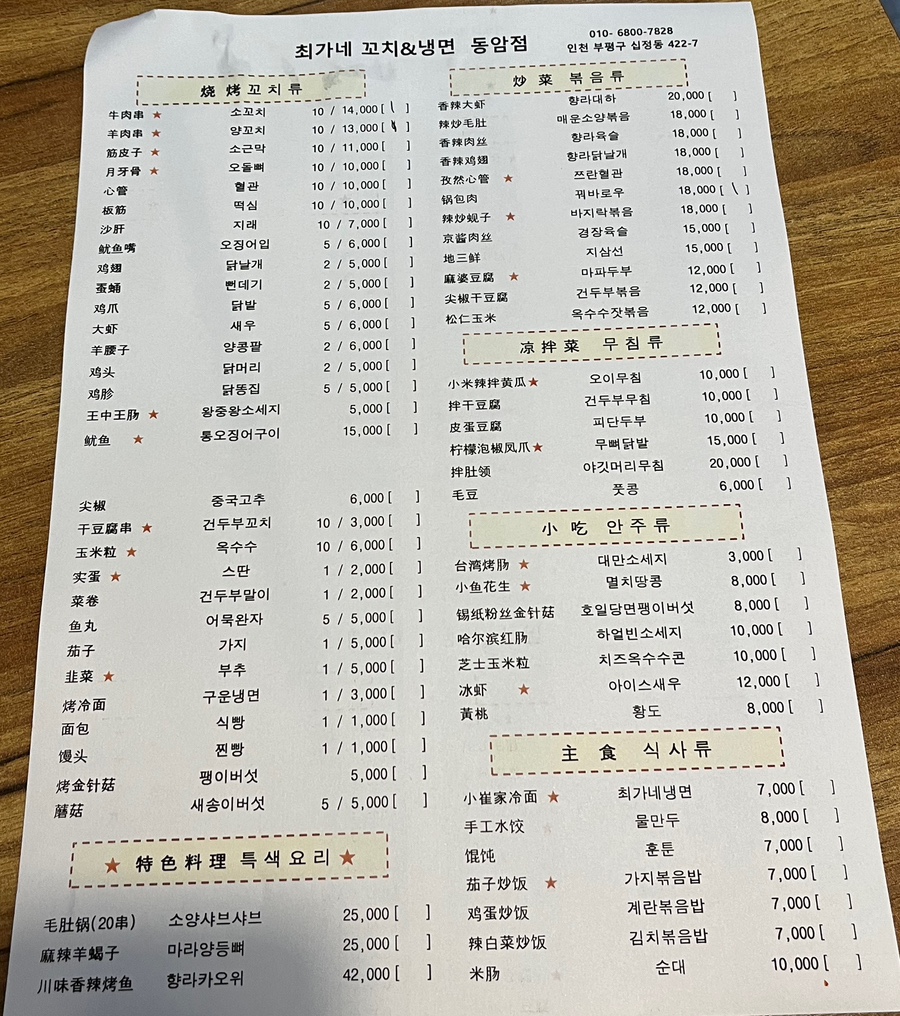 최가네 꼬치&냉면 동암점
010- 6800-7828
인천 부평구 십정동 422-7
烧 烤 꼬 치 류
牛肉串 ★ 소꼬치 10 / 14,000 [ \ ]
羊肉串 ★ 양꼬치 10 / 13,000 [ ]
筋皮子 ★ 소근막 10 / 11,000 [ ]
月牙骨 ★ 오돌뼈 10 / 10,000 [ ]
心管 혈관 10 / 10,000 [ ]
板筋 떡심 10 / 10,000 [ ]
沙肝 지래 10 / 7,000 [ ]
鱿鱼嘴 오징어입 5 / 6,000 [ ]
鸡翅 닭날개 2 / 5,000 [ ]
蚕蛹 뻔데기 2 / 5,000 [ ]
鸡爪 닭발 5 / 6,000 [ ]
大虾 새우 5 / 6,000 [ ]
羊腰子 양콩팥 2 / 6,000 [ ]
鸡头 닭머리 2 / 5,000 [ ]
鸡胗 닭똥집 5 / 5,000 [ ]
王中王肠 ★ 왕중왕소세지 5,000 [ ]
鱿鱼 ★ 통오징어구이 15,000 [ ]
尖椒 중국고추 6,000 [ ]
干豆腐串 ★ 건두부꼬치 10 / 3,000 [ ]
玉米粒 ★ 옥수수 10 / 6,000 [ ]
实蛋 ★ 스딴 1 / 2,000 [ ]
菜卷 건두부말이 1 / 2,000 [ ]
鱼丸 어묵완자 5 / 5,000 [ ]
茄子 가지 1 / 5,000 [ ]
韭菜 ★ 부추 1 / 5,000 [ ]
烤冷面 구운냉면 1 / 3,000 [ ]
面包 식빵 1 / 1,000 [ ]
馒头 찐빵 1 / 1,000 [ ]
烤金针菇 팽이버섯 5,000 [ ]
蘑菇 새송이버섯 5 / 5,000 [ ]
★ 特 色 料 理 특 색 요 리 ★
毛肚锅(20串) 소양샤브샤브 25,000 [ ]
麻辣羊蝎子 마라양등뼈 25,000 [ ]
川味香辣烤鱼 향라카오위 42,000 [ ]
炒 菜 볶 음 류
香辣大虾 향라대하 20,000 [ ]
辣炒毛肚 매운소양볶음 18,000 [ ]
香辣肉丝 향라육슬 18,000 [ ]
香辣鸡翅 향라닭날개 18,000 [ ]
孜然心管 ★ 쯔란혈관 18,000 [ ]
锅包肉 꿔바로우 18,000 [ \ ]
辣炒蚬子 ★ 바지락볶음 18,000 [ ]
京酱肉丝 경장육슬 15,000 [ ]
地三鲜 지삼선 15,000 [ ]
麻婆豆腐 ★ 마파두부 12,000 [ ]
尖椒干豆腐 건두부볶음 12,000 [ ]
松仁玉米 옥수수잣볶음 12,000 [ ]
凉 拌 菜 무 침 류
小米辣拌黄瓜★ 오이무침 10,000 [ ]
拌干豆腐 건두부무침 10,000 [ ]
皮蛋豆腐 피단두부 10,000 [ ]
柠檬泡椒凤爪★ 무뼈닭발 15,000 [ ]
拌肚领 야깃머리무침 20,000 [ ]
毛豆 풋콩 6,000 [ ]
小 吃 안 주 류
台湾烤肠 ★ 대만소세지 3,000 [ ]
小鱼花生 ★ 멸치땅콩 8,000 [ ]
锡纸粉丝金针菇 호일당면팽이버섯 8,000 [ ]
哈尔滨红肠 하얼빈소세지 10,000 [ ]
芝士玉米粒 치즈옥수수콘 10,000 [ ]
冰虾 ★ 아이스새우 12,000 [ ]
黃桃 황도 8,000 [ ]
主 食 식 사 류
小崔家冷面 ★ 최가네냉면 7,000 [ ]
手工水饺 물만두 8,000 [ ]
馄饨 훈툰 7,000 [ ]
茄子炒饭 ★ 가지볶음밥 7,000 [ ]
鸡蛋炒饭 계란볶음밥 7,000 [ ]
辣白菜炒饭 김치볶음밥 7,000 [ ]
米肠 순대 10,000 [ ]